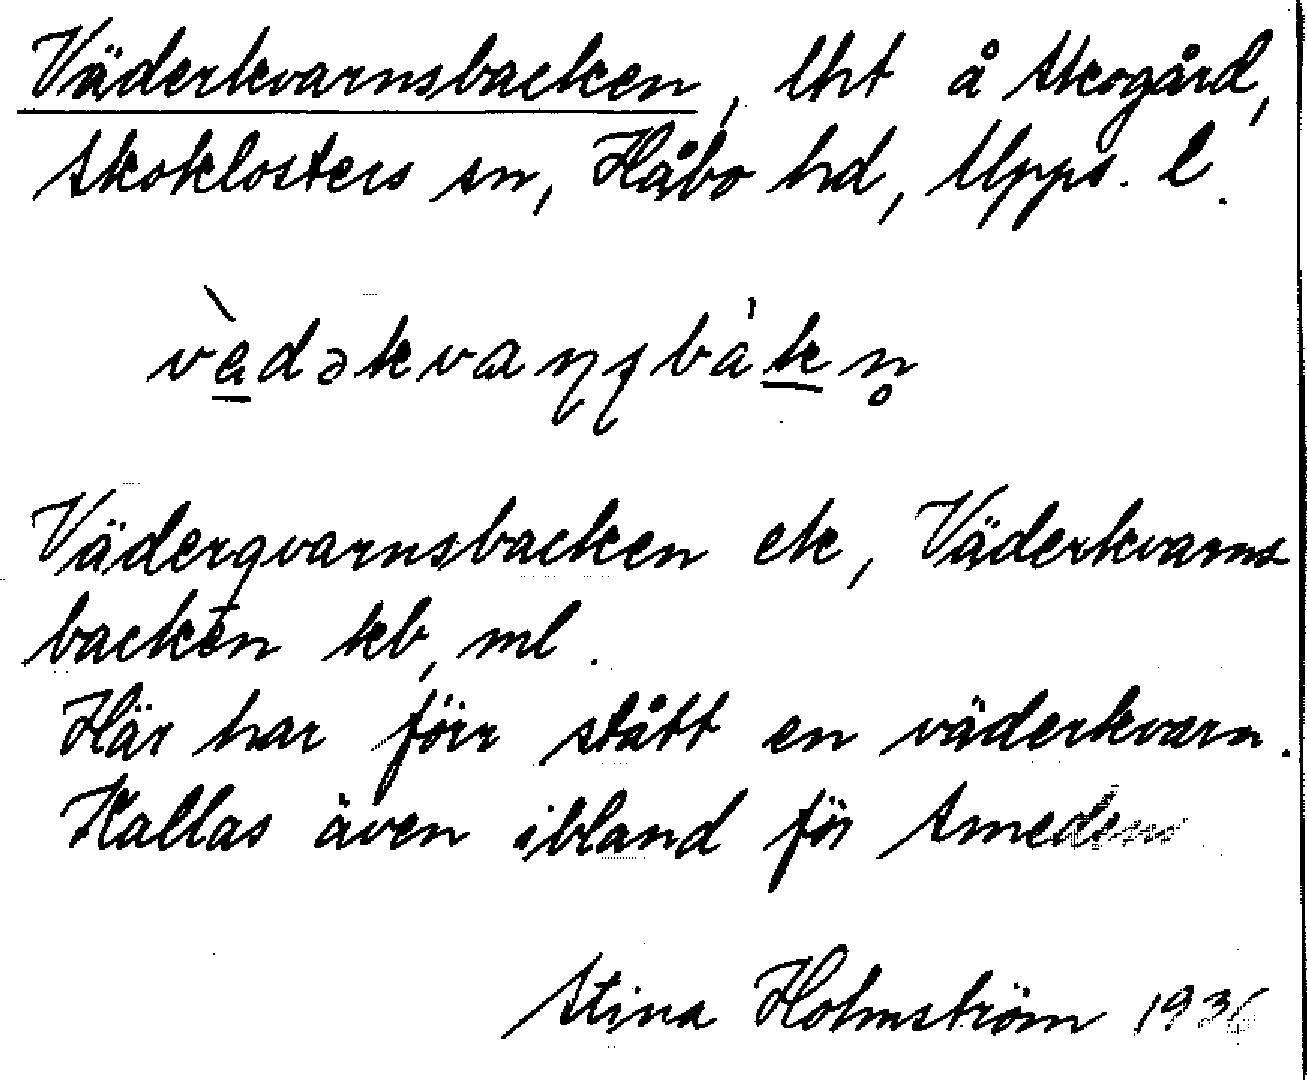 Väderkvarnsbacken, lht å Skogård,
Skoklosters sn, Håbo hd, Upps. l.
Vädergvarnsbacken ek, Väderkvarns
backen kb, ml.
Här har förr stått en väderkvarn.
Kallas även ibland för Smedens
Stina Holmström 1936